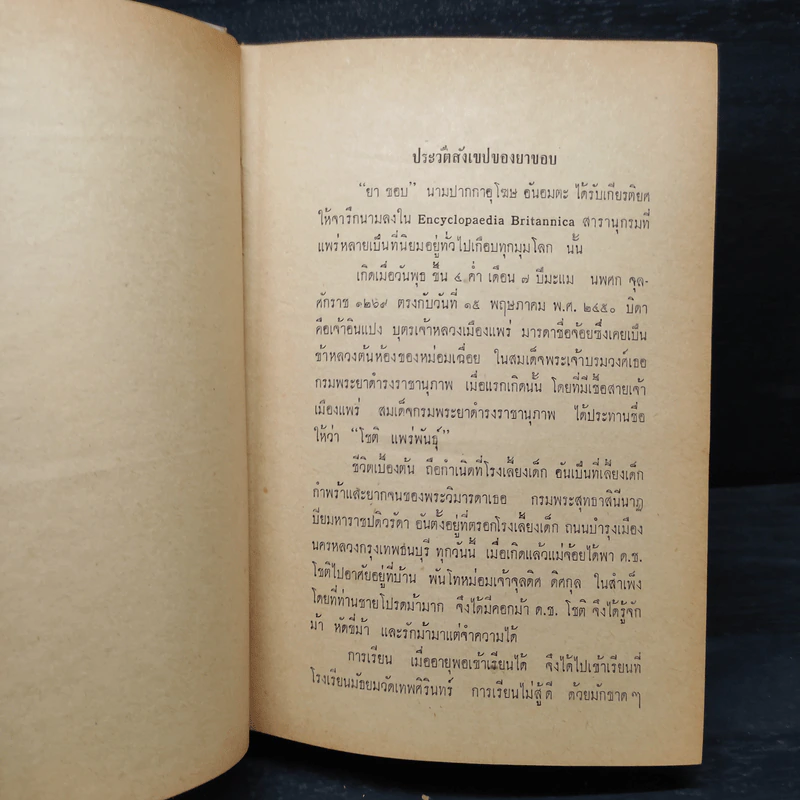 ประวัติสังเขปของยาขอบ
“ยา ขอบ” นามปากกาอุโฆษ อันอมตะ ได้รับเกียรติยศ
ให้จารึกนามลงใน Encyclopaedia Britannica สารานุกรมที่
แพร่หลายเป็นที่นิยมอยู่ทั่วไปเกือบทุกมุมโลก นั้น
เกิดเมื่อวันพุธ ขึ้น ๔ ค่ำ เดือน ๗ ปีมะแม นพศก จุล-
ศักราช ๑๒๖๙ ตรงกับวันที่ ๑๕ พฤษภาคม พ.ศ. ๒๔๕๐ บิดา
คือเจ้าอินแปง บุตรเจ้าหลวงเมืองแพร่ มารดาชื่อจ้อยซึ่งเคยเป็น
ข้าหลวงต้นห้องของหม่อมเฉื่อย ในสมเด็จพระเจ้าบรมวงศ์เธอ
กรมพระยาดำรงราชานุภาพ เมื่อแรกเกิดนั้น โดยที่มีเชื้อสายเจ้า
เมืองแพร่ สมเด็จกรมพระยาดำรงราชานุภาพ ได้ประทานชื่อ
ให้ว่า “โชติ แพร่พันธุ์”
ชีวิตเบื้องต้น ถือกำเนิดที่โรงเลี้ยงเด็ก อันเป็นที่เลี้ยงเด็ก
กำพร้าและยากจนของพระวิมารดาเธอ กรมพระสุทธาสินีนาฏ
ปิยมหาราชปดิวรัดา อันตั้งอยู่ที่ตรอกโรงเลี้ยงเด็ก ถนนบำรุงเมือง
นครหลวงกรุงเทพธนบุรี ทุกวันนี้ เมื่อเกิดแล้วแม่จ้อยได้พา ด.ช.
โชติไปอาศัยอยู่ที่บ้าน พันโทหม่อมเจ้าจุลดิศ ดิศกุล ในสำเพ็ง
โดยที่ท่านชายโปรดม้ามาก จึงได้มีคอกม้า ด.ช. โชติ จึงได้รู้จัก
ม้า หัดขี่ม้า และรักม้ามาแต่จำความได้
การเรียน เมื่ออายุพอเข้าเรียนได้ จึงได้ไปเข้าเรียนที่
โรงเรียนมัธยมวัดเทพศิรินทร์ การเรียนไม่สู้ดี ด้วยมักขาด ๆ